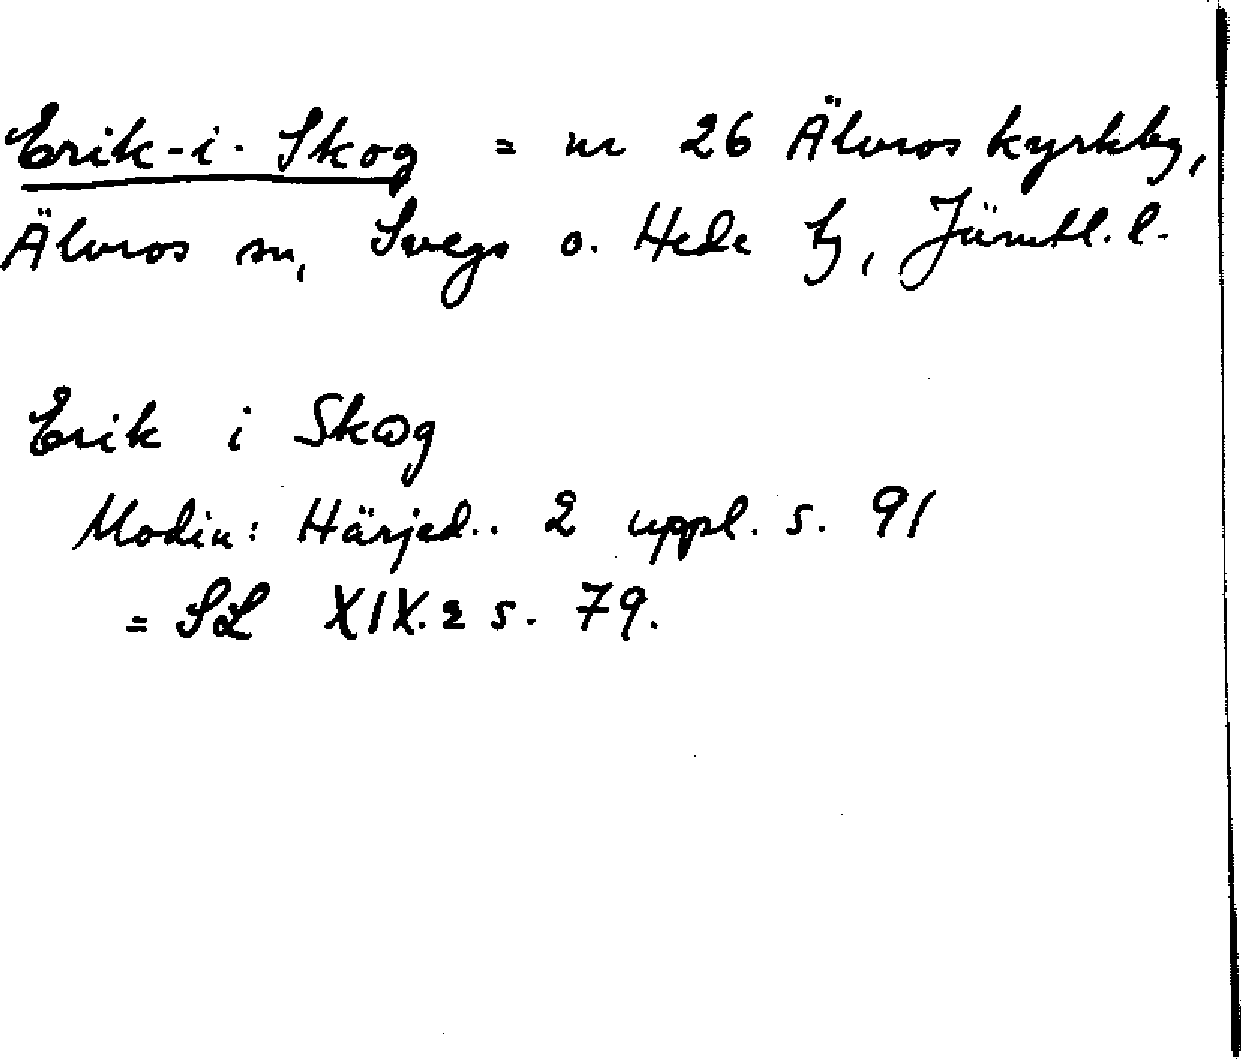 Erik-i-Skog = nr 26 Älvros kyrkby,
Älvros sn, Svegs o. Hede tg, Jämtl. l.
Erik i Skog
Modin: Härjed.. 2 uppl. s. 91
= SL XIX.2 s. 79.